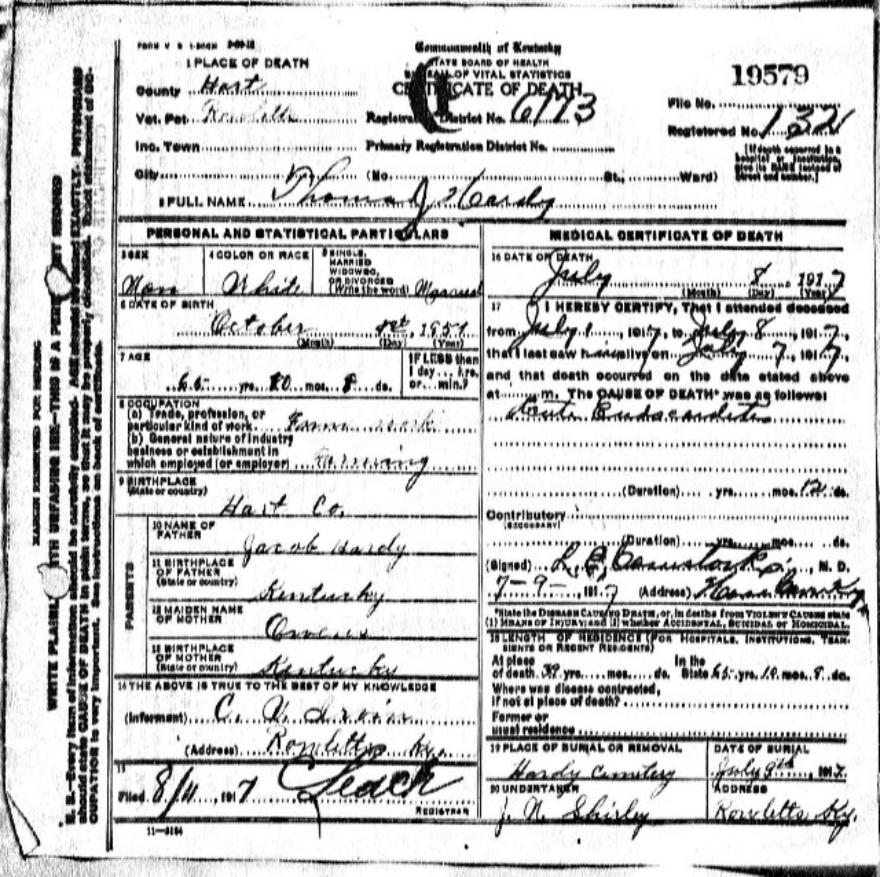 Commonwealth of Kentucky
STATE BOARD OF HEALTH
BUREAU OF VITAL STATISTICS
CERTIFICATE OF DEATH
19579
1 PLACE OF DEATH
County Hart
Vot. Pct. Rowletts
Registration District No. 6173
File No.
Registered No. 132
Inc. Town
Primary Registration District No.
City (No. St., Ward)
[If death occurred in a hospital or institution, give its NAME instead of street and number.]
2 FULL NAME Thomas J Hardy
PERSONAL AND STATISTICAL PARTICULARS
3 SEX Man
4 COLOR OR RACE White
5 SINGLE, MARRIED WIDOWED, OR DIVORCED (Write the word) Married
6 DATE OF BIRTH
October 1851
(Month) (Day) (Year)
7 AGE
65 yrs. mos. 8 ds.
IF LESS than 1 day... hrs. or... min.?
8 OCCUPATION
(a) Trade, profession, or
particular kind of work Farm work
(b) General nature of industry
business or establishment in
which employed (or employer) Farming
9 BIRTHPLACE
(State or country)
Hart Co.
PARENTS
10 NAME OF FATHER
Jacob Hardy
11 BIRTHPLACE OF FATHER
(State or country)
Kentucky
12 MAIDEN NAME OF MOTHER
Owens
13 BIRTHPLACE OF MOTHER
(State or country)
Kentucky
14 THE ABOVE IS TRUE TO THE BEST OF MY KNOWLEDGE
(Informant) C. V. Irvin
(Address) Rowletts Ky.
15
Filed 8/4 1917 Leach
REGISTRAR
11-3184
MEDICAL CERTIFICATE OF DEATH
16 DATE OF DEATH
July 8, 1917
(Month) (Day) (Year)
17 I HEREBY CERTIFY, That I attended deceased
from July 1, 1917, to July 8, 1917,
that I last saw him alive on July 7, 1917,
and that death occurred on the date stated above
at m. The CAUSE OF DEATH* was as follows:
Acute Endocarditis
(Duration) yrs. mos. 12 ds.
Contributory
(SECONDARY)
(Duration) yrs. mos. ds.
(Signed) M. D.
7-9-, 1917 (Address)
*State the DISEASE CAUSING DEATH, or, in deaths from VIOLENT CAUSES state
(1) MEANS OF INJURY; and (2) whether ACCIDENTAL, SUICIDAL or HOMICIDAL.
18 LENGTH OF RESIDENCE (FOR HOSPITALS, INSTITUTIONS, TRANSIENTS OR RECENT RESIDENTS)
At place of death 39 yrs. mos. ds. In the State 65 yrs. 10 mos. 8 ds.
Where was disease contracted,
if not at place of death?
Former or
usual residence
19 PLACE OF BURIAL OR REMOVAL
Hardy Cemetery
DATE OF BURIAL
July 9th, 1917
20 UNDERTAKER
J. N. Shirley
ADDRESS
Rowletts Ky.
MARGIN RESERVED FOR BINDING